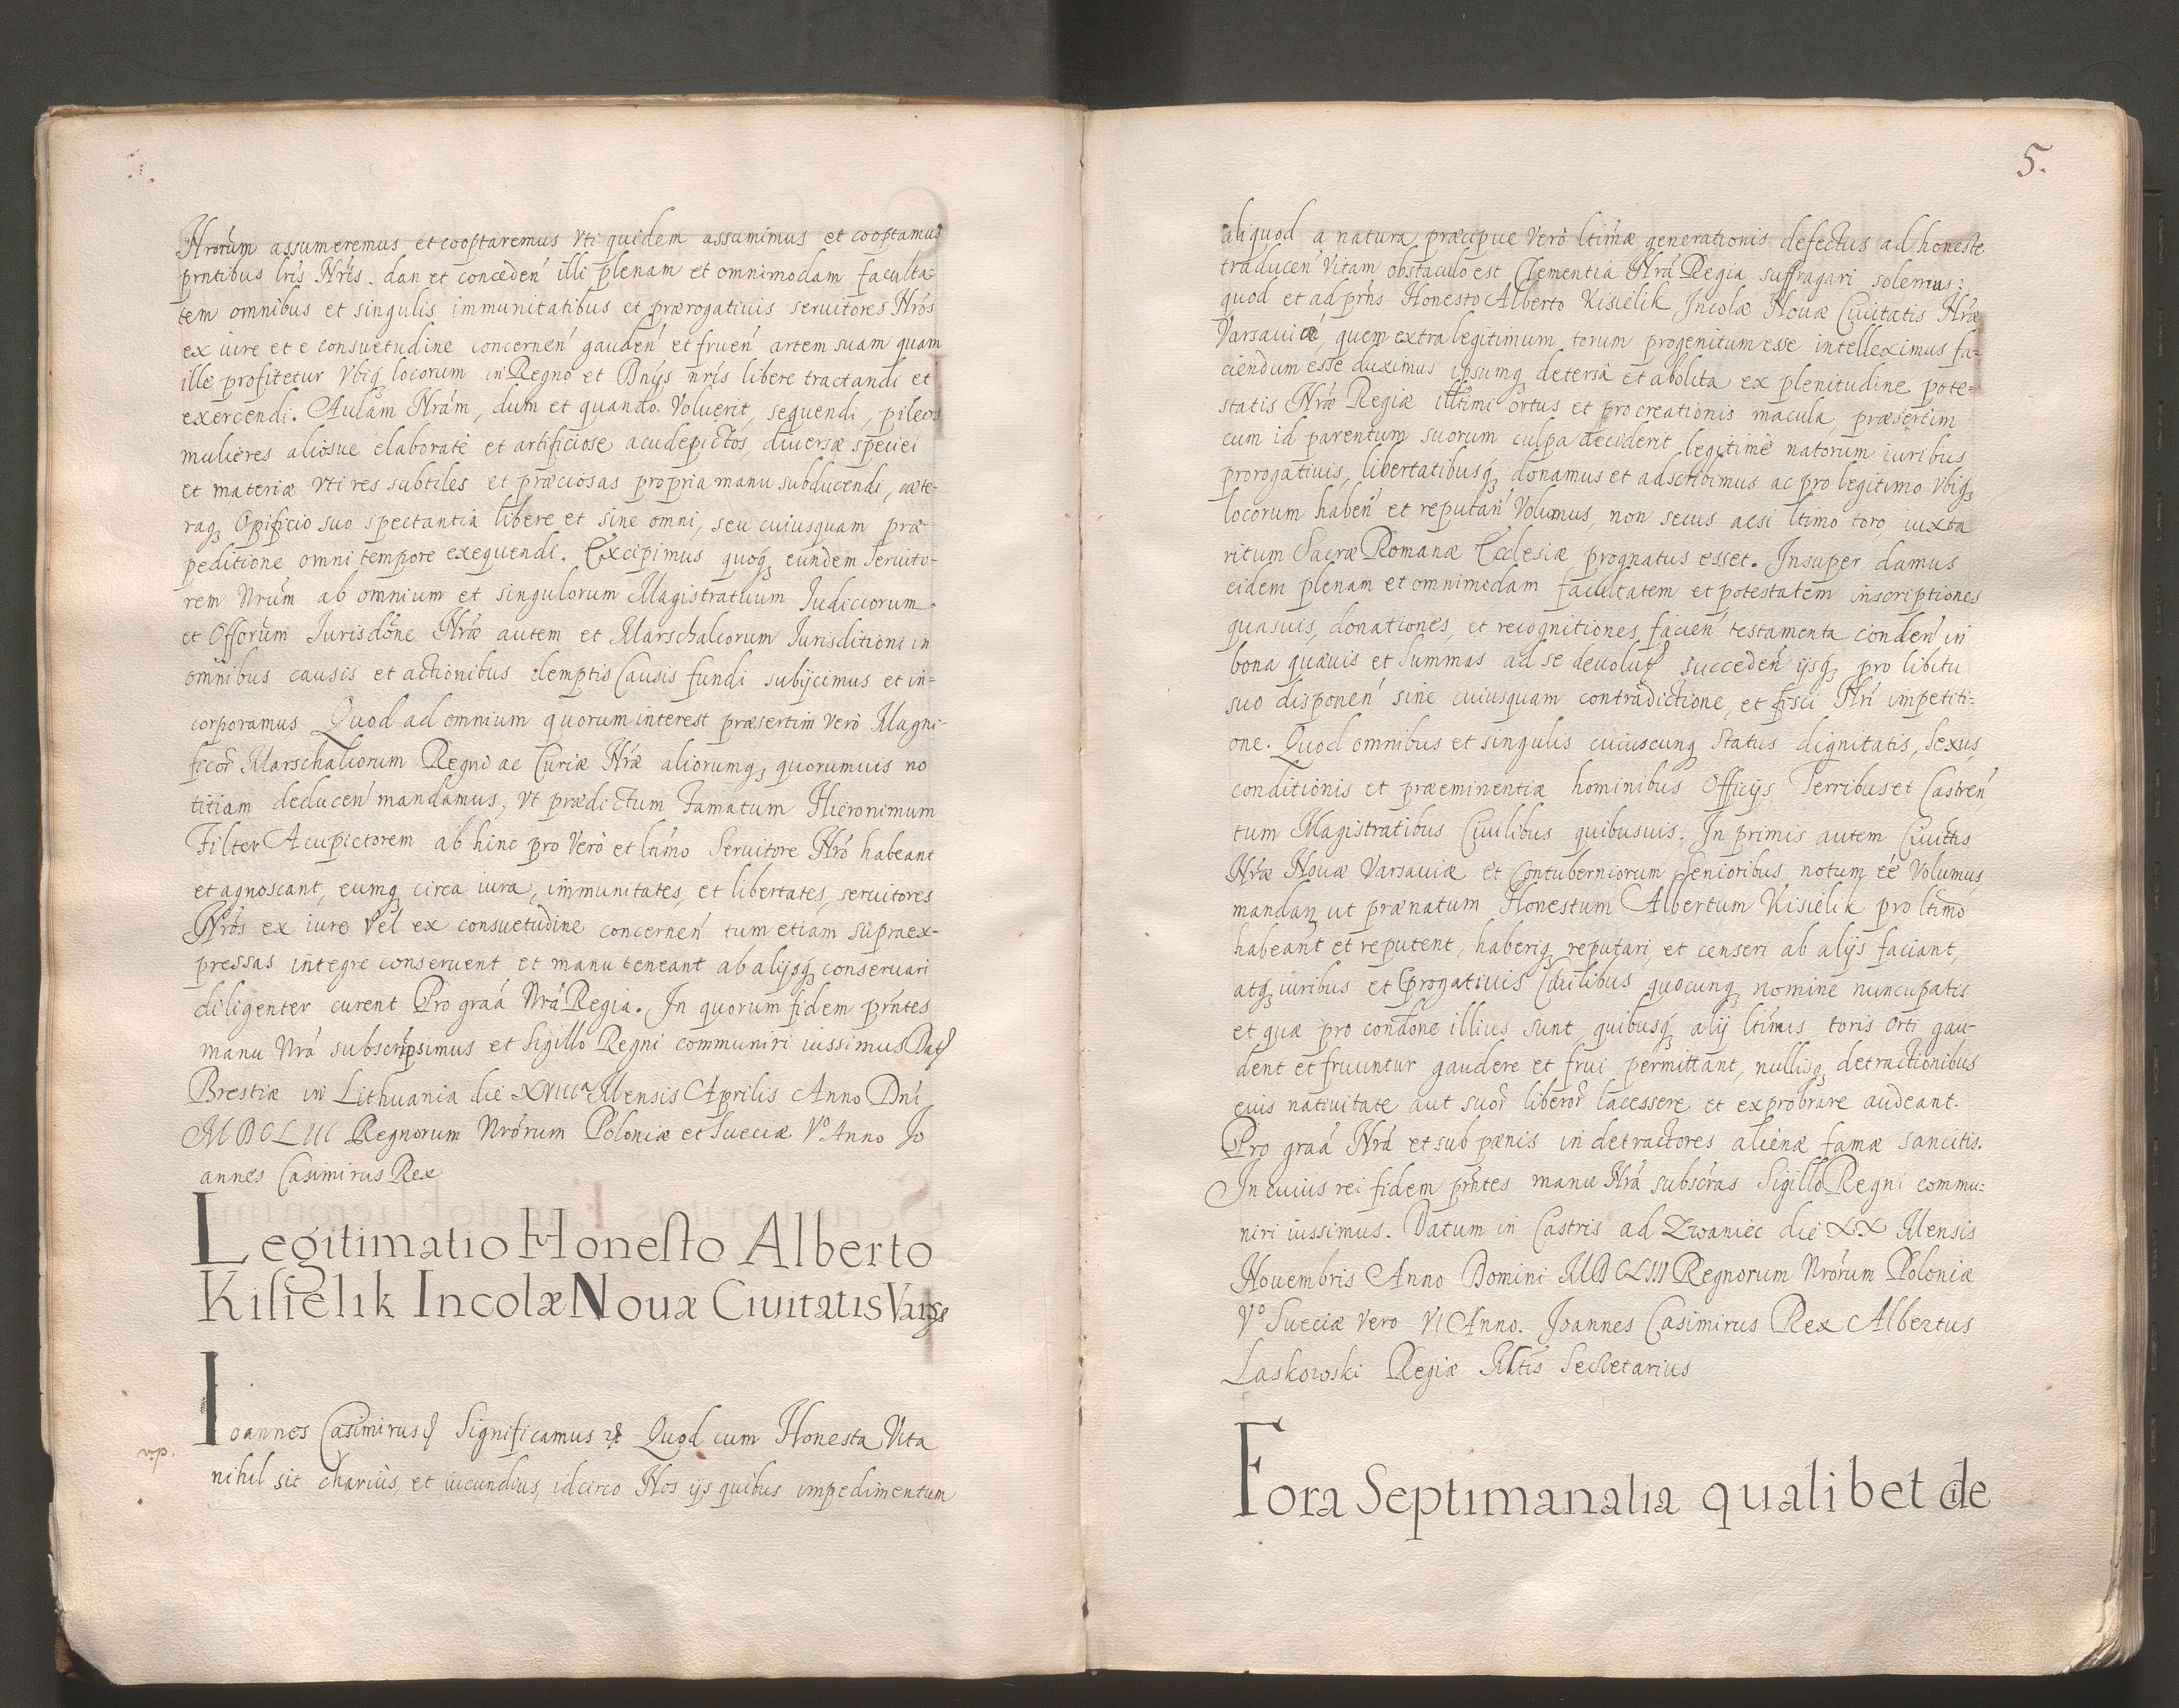 Nrorum assumeremus et cooptaremus Vti quidem assumimus et cooptamus
prntibus lris Nris. dan et conceden illi plenam et omnimodam faculta-
tem omnibus et singulis immunitatibus et prærogatiuis seruitores Nros
ex iure et e consuetudine concernen gauden et fruen artem suam quam
ille profitetur Vbiq locorum in Regno et Dnijs nris libere tractandi et
exercendi. Aulam Nram, dum et quando Voluerit, sequendi, pileos
mulieres aliosue elaborate et artificiose acudepictos, diuersæ speciei
et materiæ Vti res subtiles et præciosas propria manu subducendi, cæte-
raq Opificio suo spectantia libere et sine omni, seu cuiusquam præ-
peditione omni tempore exequendi. Excipimus quoq eundem Seruito-
rem Nrum ab omnium et singulorum Magistratuum Judiciorum
et Offorum Jurisdone Nræ autem et Marschalcorum Jurisditioni in
omnibus causis et actionibus demptis Causis fundi subijcimus et in-
corporamus Quod ad omnium quorum interest præsertim Vero Magni-
ficor Marschalcorum Regni ac Curiæ Nræ aliorumq quorumuis no
titiam deducen mandamus, Vt prædictum Famatum Hieronimum
Filter Acupictorem ab hinc pro Vero et ltimo Seruitore Nro habeant
et agnoscant, eumq circa iura, immunitates, et libertates, seruitores
Nros ex iure Vel ex consuetudine concernen tum etiam supraex-
pressas integre conseruent et manu teneant ab alijsq conseruari
diligenter curent Pro graa Nra Regia. In quorum fidem prntes
manu Nra subscripsimus et Sigillo Regni communiri iussimus Dat
Brestiæ in Lithuania die XVIIIa Mensis Aprilis Anno Dni
MDCLIII Regnorum Nrorum Poloniæ et Sueciæ Vo Anno Jo
annes Casimirus Rex
Legitimatio Honesto Alberto
Kisielik Incolæ Nouæ Ciuitatis Vars
Ioannes Casimirus Significamus Quod cum Honesta Vita
vp.
nihil sit charius, et iucundius, idcirco Nos ijs quibus impedimentum
5.
aliquod a natura præcipue Vero ltimæ generationis defectus ad honeste
traducen Vitam obstaculo est Clementia Nra Regia suffragari solemus;
quod et ad prns Honesto Alberto Kisielik Incolæ Nouæ Ciuitatis Nræ
Varsauien, quem extra legitimum torum progenitum esse intelleximus fa-
ciendum esse duximus ipsumq detersa et abolita ex plenitudine pote-
statis Nræ Regiæ illtimi ortus et procreationis macula, præsertim
cum id parentum suorum culpa deciderit legitime natorum iuribus
prorogatiuis, libertatibusq donamus et adscribimus ac pro legitimo Vbiq
locorum haben et reputan Volumus, non secus acsi ltimo toro, iuxta
ritum Sacræ Romanæ Ecclesiæ prognatus esset. Insuper damus
eidem plenam et omnimodam facultatem et potestatem inscriptiones
quasuis, donationes, et recognitiones facien testamenta conden in
bona quæuis et Summas ad se deuolut succeden ijsq pro libitu
suo disponen sine cuiusquam contradictione, et fisci Nri impetiti-
one. Quod omnibus et singulis cuiuscunq Status dignitatis, Sexus,
conditionis et præeminentiæ hominibus Officijs Terribus et Castren
tum Magistratibus Ciuilibus quibusuis. In primis autem Ciuittis
Nræ Nouæ Varsauiæ et Contuberniorum Senioribus notum ee Volumus
mandan ut prænatum Honestum Albertum Kisielik pro ltimo
habeant et reputent, haberiq reputari, et censeri ab alijs faciant,
atq iuribus et progatiuis Ciuilibus quocunq nomine nuncupatis
et quæ pro condone illius sunt quibusq alij ltimis toris orti gau-
dent et fruuntur gaudere et frui permittant, nullisq detractionibus
euis natiuitate aut suor liberor lacessere et exprobrare audeant.
Pro graa Nra et sub pænis in detractores alienæ famæ sancitis.
In cuius rei fidem prntes manu Nra subscras Sigillo Regni commu-
niri iussimus. Datum in Castris ad Zwaniec die XX Mensis
Nouembris Anno Domini MDCLIII Regnorum Nrorum Poloniæ
Vo Sueciæ Vero VI Anno. Joannes Casimirus Rex Albertus
Laskowski Regiæ Mtis Secretarius
Fora Septimanalia qualibet die